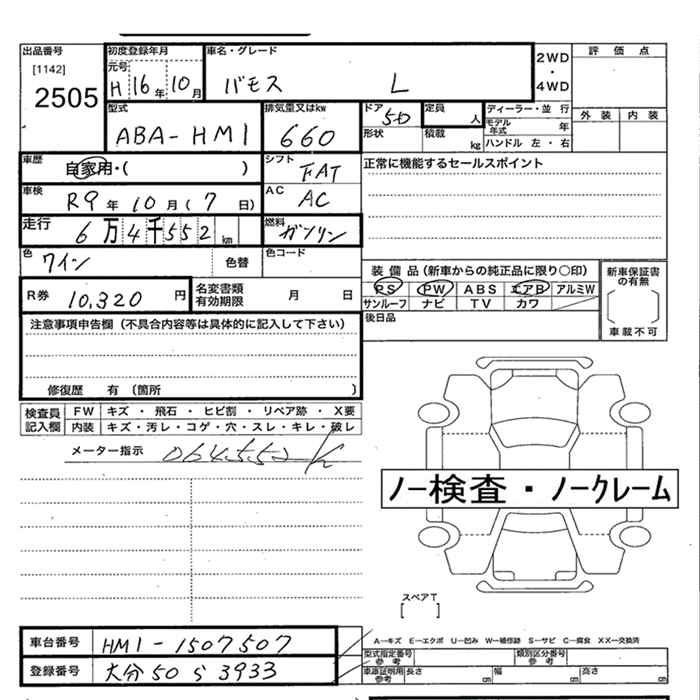 出品番号 初度登録年月 車名・グレード 2WD・4WD 評価点
[1142] 元号
2505 H 16年 10月 バモス L
外装 内装
型式 排気量又はkw ドア 5D 定員 人 ディーラー・並行
モデル年式 年
ABA-HM1 660 形状 積載 kg ハンドル 左・右
車歴 自家用・( ) シフト FAT 正常に機能するセールスポイント
車検 R9年 10月(7日) AC AC
走行 6万4千552km 燃料 ガソリン
色 ワイン 色替 色コード
装備品(新車からの純正品に限り○印) 新車保証書の有無
R券 10,320円 名変書類有効期限 月 日
PS PW ABS エアB アルミW
サンルーフ ナビ TV カワ 車載不可
後日品
注意事項申告欄(不具合内容等は具体的に記入して下さい)
修復歴 有(箇所 )
検査員記入欄 FW キズ・飛石・ヒビ割・リペア跡・X要
内装 キズ・汚レ・コゲ・穴・スレ・キレ・破レ
メーター指示 064552K
ノー検査・ノークレーム
スペアT
[ ]
A―キズ E―エクボ U―凹み W―補修跡 S―サビ C―腐食 XX―交換済
車台番号 HM1-1507507
型式指定番号 参考 類別区分番号 参考
登録番号 大分50ら3933
車庫証明用 参考 長さ cm 幅 cm 高さ cm